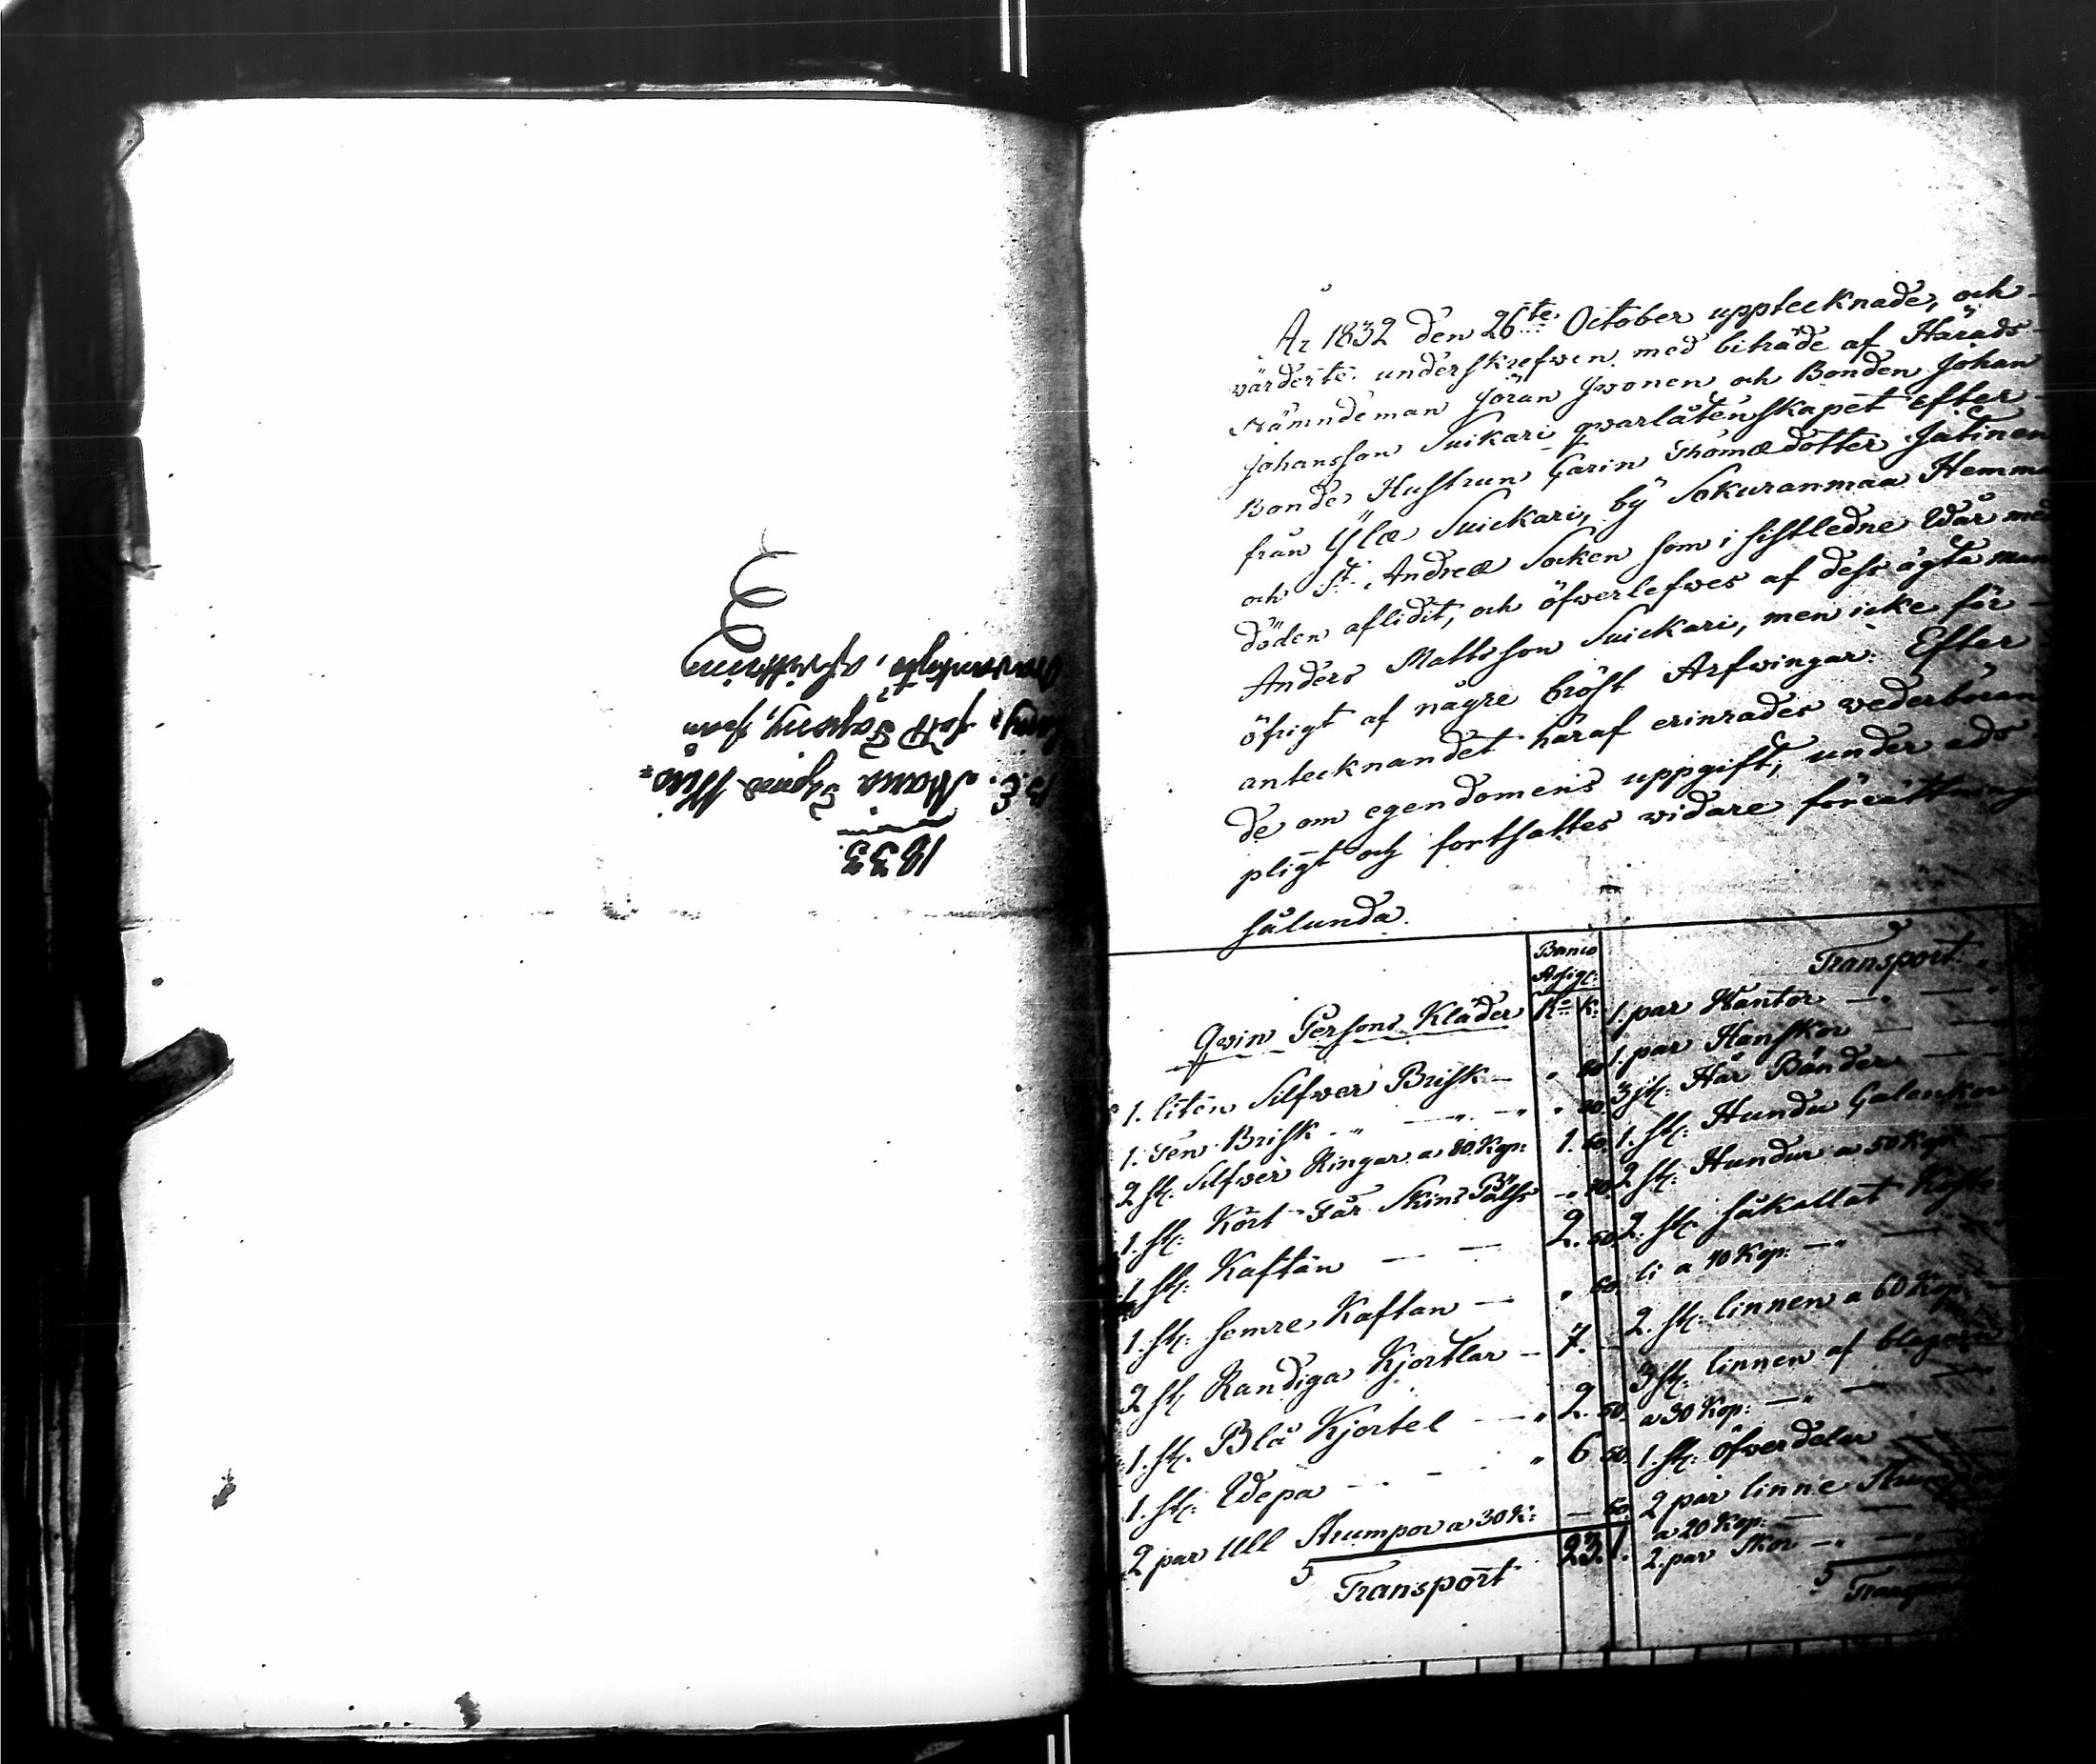 1833.
B. E. Maria Sigrid
År 1832 den 26te October upptecknade, och
värderte underskrefwen med biträde af Härads
Nämndeman Jöran Jwonen och Bonden Johan
Johansson Suikari qwarlåtenskapet efter
Bonde Hustrun Carin Thomædotter Jätinen
från Ylæ Suickari, by Sokuranmaa Hemma
och St. Andreæ Socken som i sistledne Wår med
döden aflidit, och öfwerlefwes af dess ägta man
Anders Mattsson Suickari, men icke för
öfrigt af någre bröst Arfwingar. Efter
antecknandet häraf erinrades wederböran
de om egendomens uppgift, under eds
pligt och fortsattes widare förrättningen
sålunda.
Banco
Assigr:
Qwin Persons Kläder Ro K:
1. liten Silfwer Brisk 80
1. Ten Brisk 20
2 st: Silfwer Ringar a 80 Kop: 1. 60.
1. st: Kort Får Skins Päls
1 st: Kaftan 2. 50.
1. st: semre Kaftan 60.
2 st: Randiga Kjortlar 7.
1. st: Blå Kjortel 2. 50.
1. st: Wepa 6 50.
2 par Ull Strumpor a 30 K: 60.
Transport 23. 1.
Transport
1. par Wantor
1. par Hanskor
3 st: Hår Bänder
1. st: Hundu Galenkor
2 st: Hundur a 50 Kop:
2. st: såkallat
li a 40 Kop:
2. st: linnen a 60 Kop:
3 st: linnen af blagarn
a 30 Kop:
1. st: öfverdelar
2 par linne Strumpor
a 20 Kop:
2. par Skor
Transport